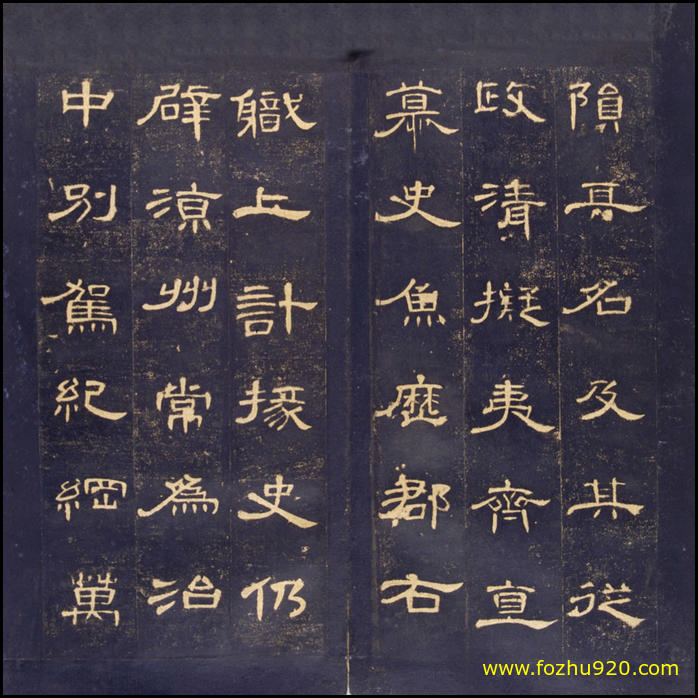 隕其名及其從
政清擬夷齊直
慕史魚歷郡右
職上計掾史仍
辟涼州常為治
中別駕紀綱萬
www.fozhu920.com